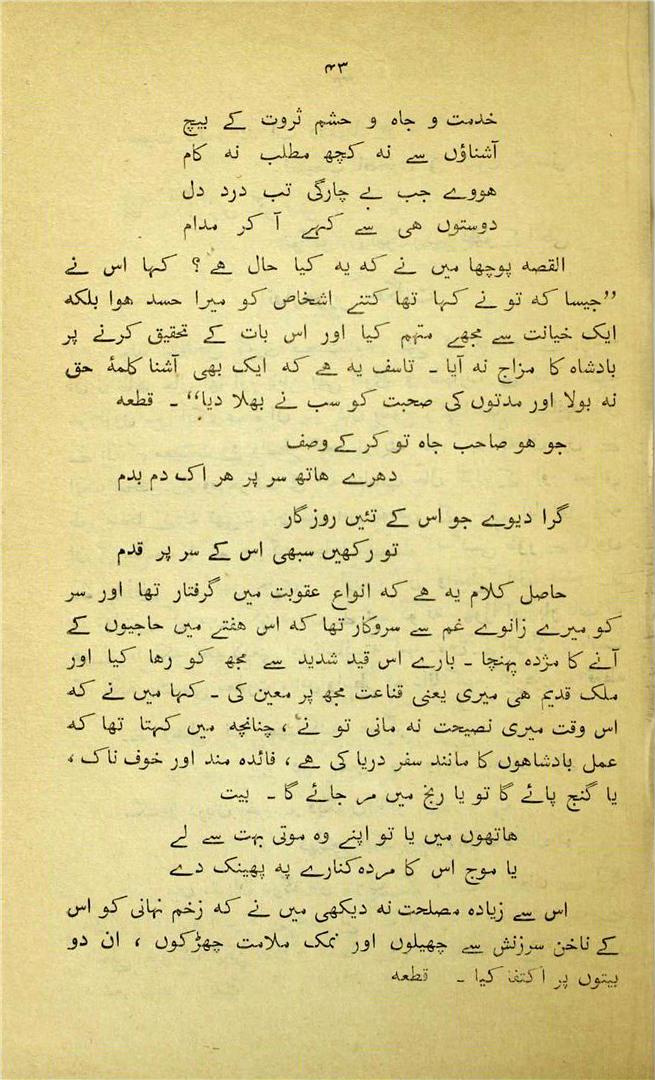 ۴۳
خدمت و جاہ و حشم ثروت کے بیچ
آشناؤں سے نہ کچھ مطلب نہ کام
ھووے جب بے چارگی تب درد دل
دوستوں ھی سے کہے آ کر مدام
القصہ پوچھا میں نے کہ یہ کیا حال ھے؟ کہا اس نے
”جیسا کہ تو نے کہا تھا کتنے اشخاص کو میرا حسد ھوا بلکہ
ایک خیانت سے مجھے متہم کیا اور اس بات کے تحقیق کرنے پر
بادشاہ کا مزاج نہ آیا ۔ تاسف یہ ھے کہ ایک بھی آشنا کلمۂ حق
نہ بولا اور مدتوں کی صحبت کو سب نے بھلا دیا“ ۔ قطعہ
جو ھو صاحب جاہ تو کر کے وصف
دھرے ھاتھ سر پر ھر اک دم بدم
گرا دیوے جو اس کے تئیں روزگار
تو رکھیں سبھی اس کے سر پر قدم
حاصل کلام یہ ھے کہ انواع عقوبت میں گرفتار تھا اور سر
کو میرے زانوے غم سے سروکار تھا کہ اس ھفتے میں حاجیوں کے
آنے کا مژدہ پہنچا ۔ بارے اس قید شدید سے مجھ کو رھا کیا اور
ملک قدیم ھی میری یعنی قناعت مجھ پر معین کی ۔ کہا میں نے کہ
اس وقت میری نصیحت نہ مانی تو نے ، چنانچہ میں کہتا تھا کہ
عمل بادشاھوں کا مانند سفر دریا کی ھے ، فائدہ مند اور خوف ناک ،
یا گنج پائے گا تو یا رنج میں مر جائے گا ۔ بیت
ھاتھوں میں یا تو اپنے وہ موتی بہت سے لے
یا موج اس کا مردہ کنارے پہ پھینک دے
اس سے زیادہ مصلحت نہ دیکھی میں نے کہ زخم نہانی کو اس
کے ناخن سرزنش سے چھیلوں اور نمک ملامت چھڑکوں ، ان دو
بیتوں پر اکتفا کیا ۔ قطعہ